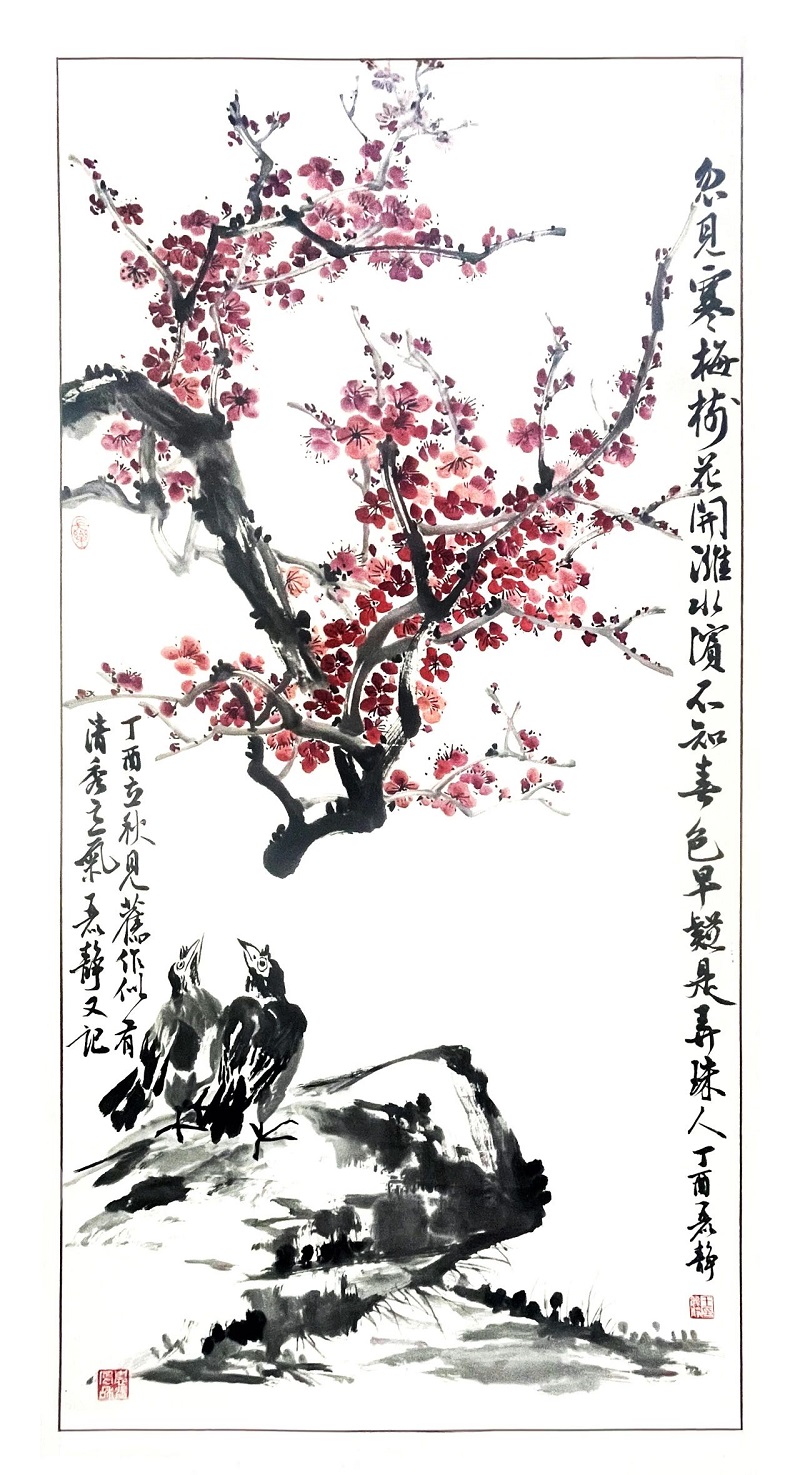 忽見寒梅樹花開濰水濱不知春色早疑是弄珠人丁酉靜
丁酉立秋見舊作似有
清秀之氣靜又記